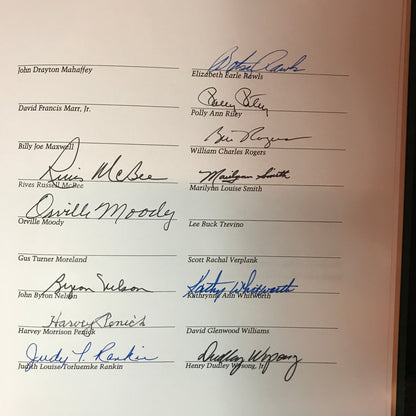 John Drayton Mahaffey
David Francis Marr, Jr.
Billy Joe Maxwell
Rives McBee
Rives Russell McBee
Orville Moody
Orville Moody
Gus Turner Moreland
Byron Nelson
John Byron Nelson
Harvey Penick
Harvey Morrison Penick
Judy T. Rankin
Judith Louise Torluemke Rankin
Betsy Rawls
Elizabeth Earle Rawls
Polly Riley
Polly Ann Riley
Bill Rogers
William Charles Rogers
Marilynn Smith
Marilynn Louise Smith
Lee Buck Trevino
Scott Rachal Verplank
Kathy Whitworth
Kathrynne Ann Whitworth
David Glenwood Williams
Dudley Wysong
Henry Dudley Wysong, Jr.